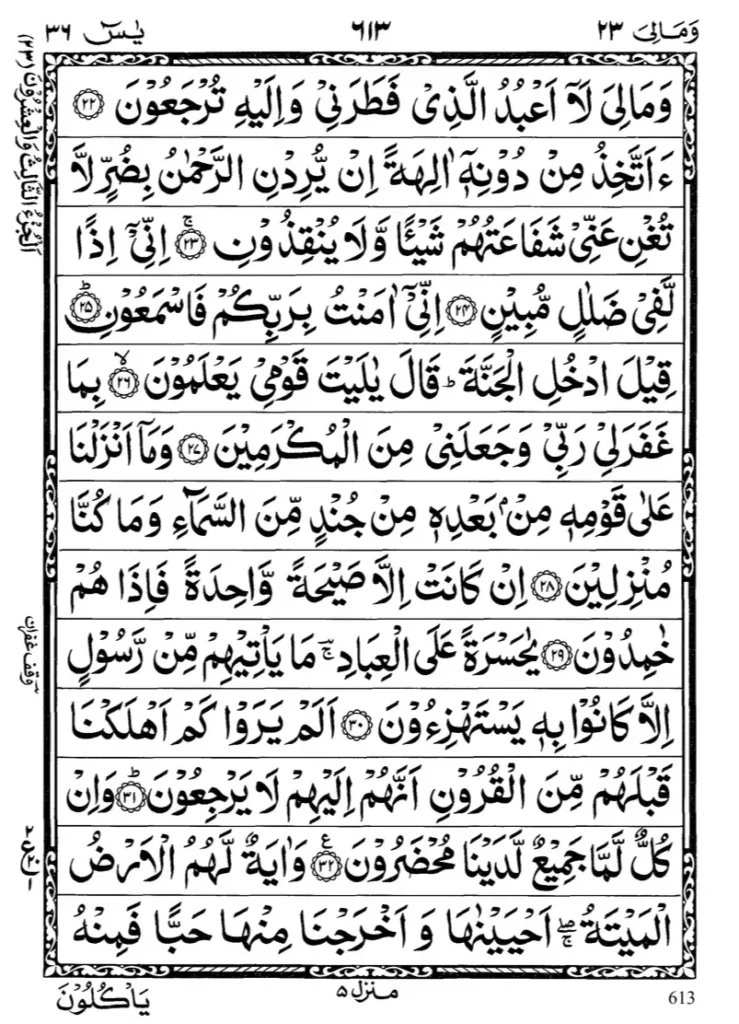 وَمَالِیَ ٢٣ ٦١٣ يٰسٓ ٣٦
اَلْجُزْءُ الثَّالِثُ وَالْعِشْرُوْنَ (٢٣)
وَمَالِیَ لَاۤ اَعْبُدُ الَّذِیْ فَطَرَنِیْ وَاِلَیْهِ تُرْجَعُوْنَ ﴿٢٢﴾
ءَاَتَّخِذُ مِنْ دُوْنِهٖۤ اٰلِهَةً اِنْ یُّرِدْنِ الرَّحْمٰنُ بِضُرٍّ لَّا
تُغْنِ عَنِّیْ شَفَاعَتُهُمْ شَیْـًٔا وَّلَا یُنْقِذُوْنِ ۚ﴿٢٣﴾ اِنِّیْۤ اِذًا
لَّفِیْ ضَلٰلٍ مُّبِیْنٍ ﴿٢٤﴾ اِنِّیْۤ اٰمَنْتُ بِرَبِّكُمْ فَاسْمَعُوْنِ ؕ﴿٢٥﴾
قِیْلَ ادْخُلِ الْجَنَّةَ ؕ قَالَ یٰلَیْتَ قَوْمِیْ یَعْلَمُوْنَ ۙ﴿٢٦﴾ بِمَا
غَفَرَلِیْ رَبِّیْ وَجَعَلَنِیْ مِنَ الْمُكْرَمِیْنَ ﴿٢٧﴾ وَمَاۤ اَنْزَلْنَا
عَلٰی قَوْمِهٖ مِنْۢ بَعْدِهٖ مِنْ جُنْدٍ مِّنَ السَّمَآءِ وَمَا كُنَّا
مُنْزِلِیْنَ ﴿٢٨﴾ اِنْ كَانَتْ اِلَّا صَیْحَةً وَّاحِدَةً فَاِذَا هُمْ
خٰمِدُوْنَ ﴿٢٩﴾ یٰحَسْرَةً عَلَی الْعِبَادِ ۣۚ مَا یَاْتِیْهِمْ مِّنْ رَّسُوْلٍ
وقف غفران
اِلَّا كَانُوْا بِهٖ یَسْتَهْزِءُوْنَ ﴿٣٠﴾ اَلَمْ یَرَوْا كَمْ اَهْلَكْنَا
قَبْلَهُمْ مِّنَ الْقُرُوْنِ اَنَّهُمْ اِلَیْهِمْ لَا یَرْجِعُوْنَ ؕ﴿٣١﴾ وَاِنْ
كُلٌّ لَّمَّا جَمِیْعٌ لَّدَیْنَا مُحْضَرُوْنَ ﴿٣٢﴾ وَاٰیَةٌ لَّهُمُ الْاَرْضُ
الْمَیْتَةُ ۖۚ اَحْیَیْنٰهَا وَ اَخْرَجْنَا مِنْهَا حَبًّا فَمِنْهُ
یَاْكُلُوْنَ منزل ٥ 613